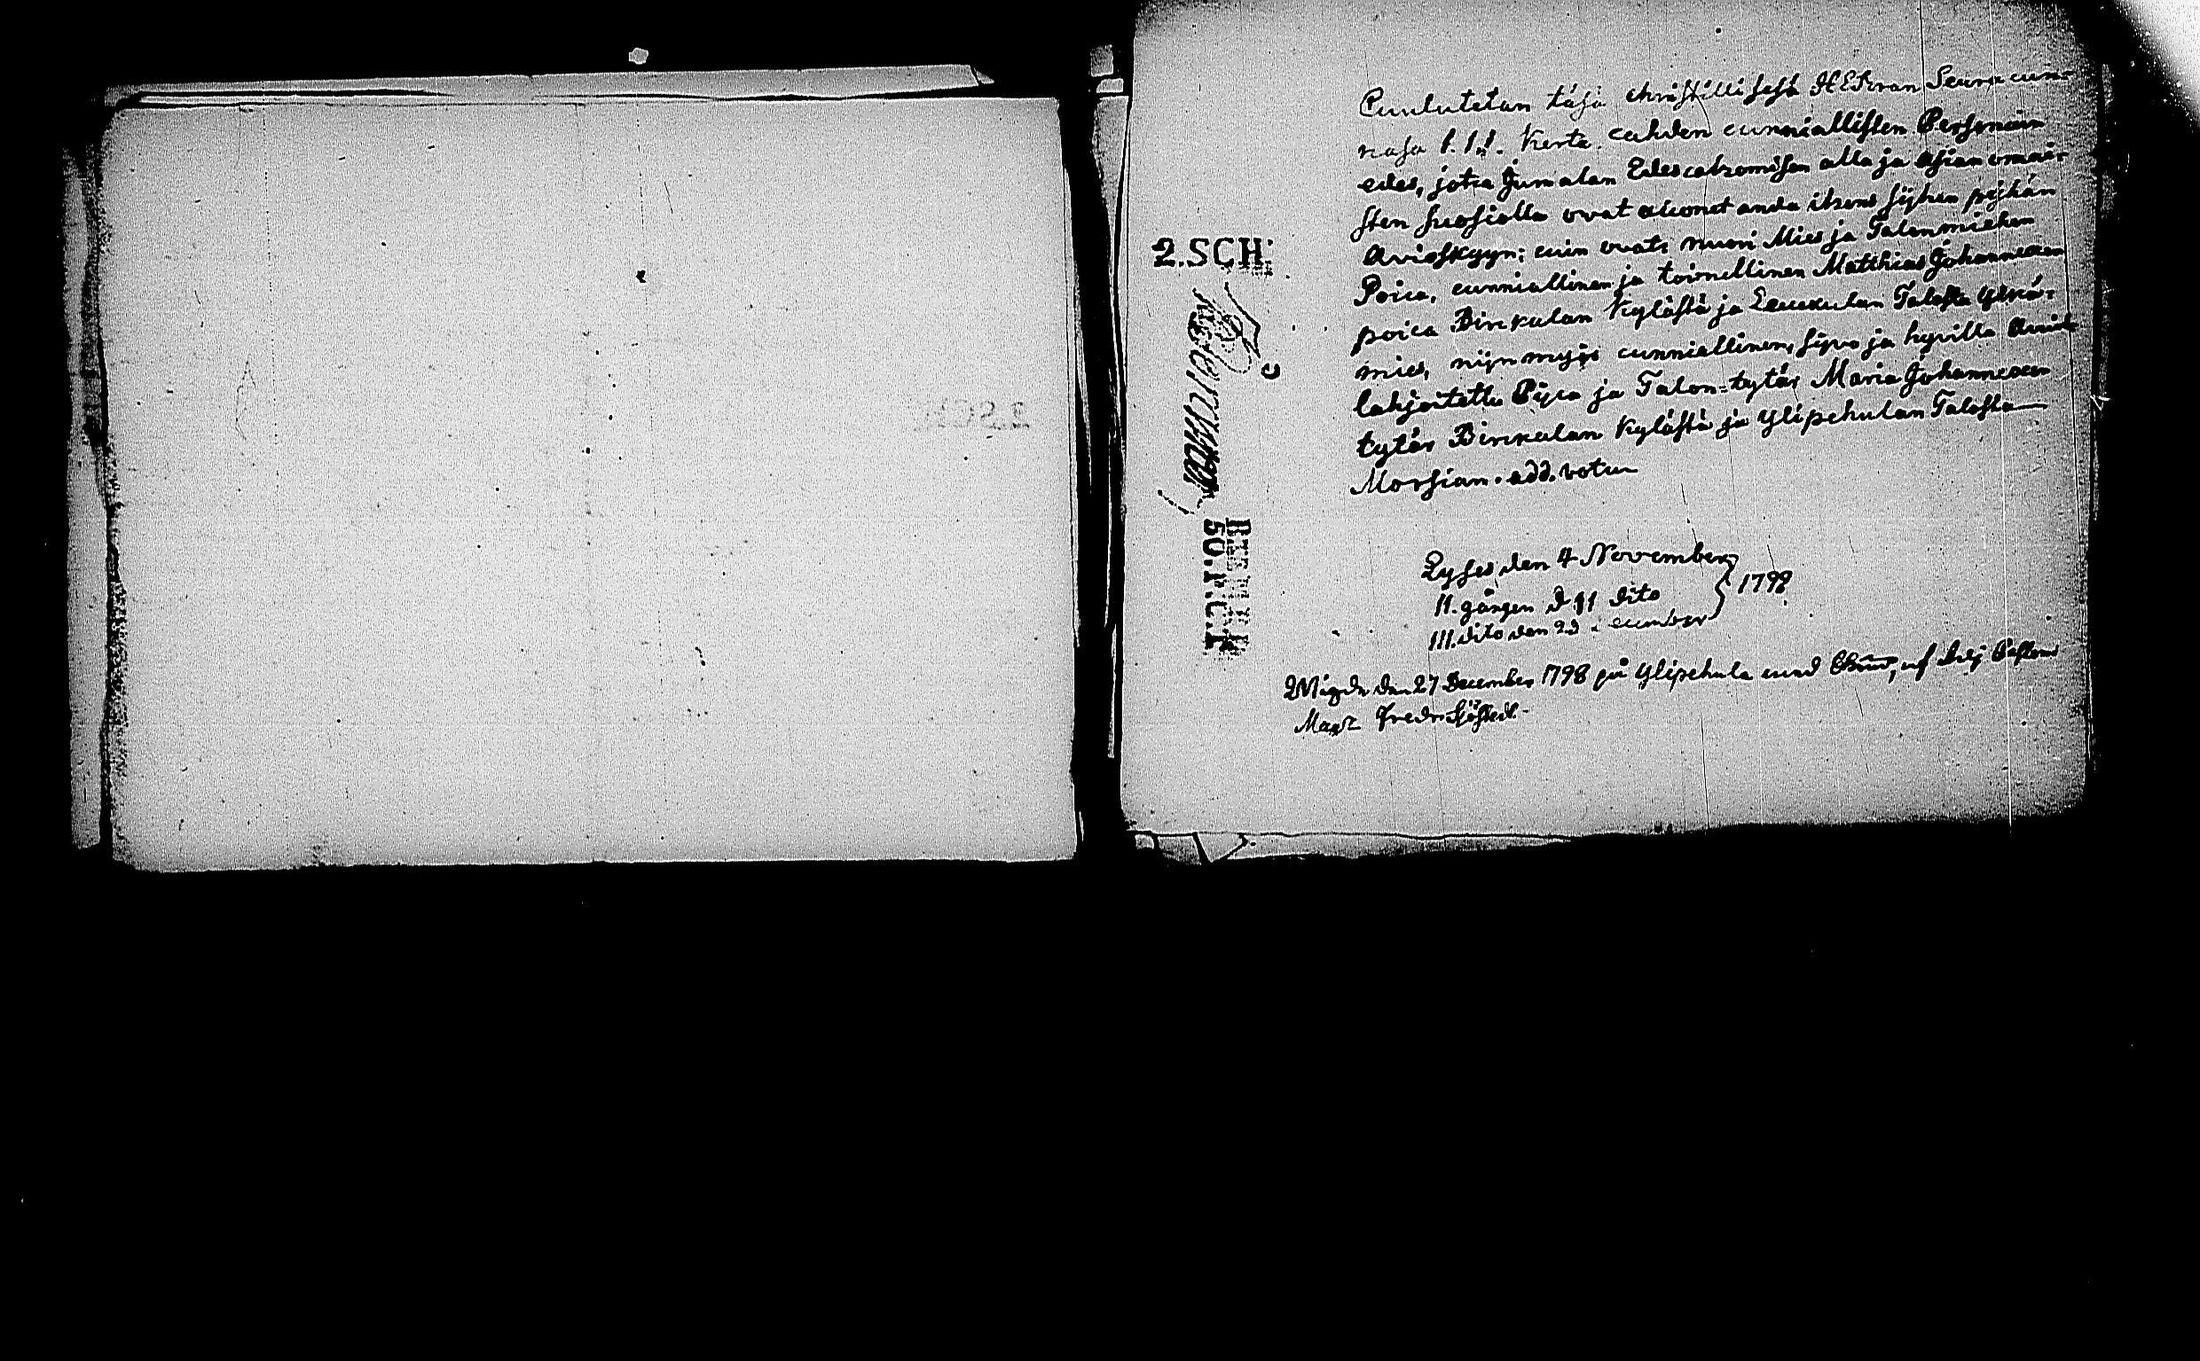 Cuulutetan täsä christillisesä HERran Seuracun-
nasa 1. 1.1. Kerta. cahden cunniallisten Personain
edes, jotca Jumalan Edescatzomisen alla ja Asian omais-
sten suosiolla ovat aiconet anda itzens sijhen pyhän
Aviosskyyn: cuin ovat: nuori Mies ja Talonmiehen
Poica, cunniallinen ja toimellinen Matthias Johannexen
poica Birckalan Kylästä ja Talosta Yljkä-
mies, nijn myös cunniallinen, sijvo ja hyvillä Avuilla
lahjoitettu Pijca ja Talon-tytär Maria Johannexen
tytär Birckalan Kylästä ja Ylipehulan Talosta
Morsian. add. votum
2.SCH:
Lyses den 4 November
11. gången d 11 dito
111. dito den December
1798
Wigde den 27 December 1798 på Ylipehula med Brud, af
Mag:r Fredr.
2.SCH: